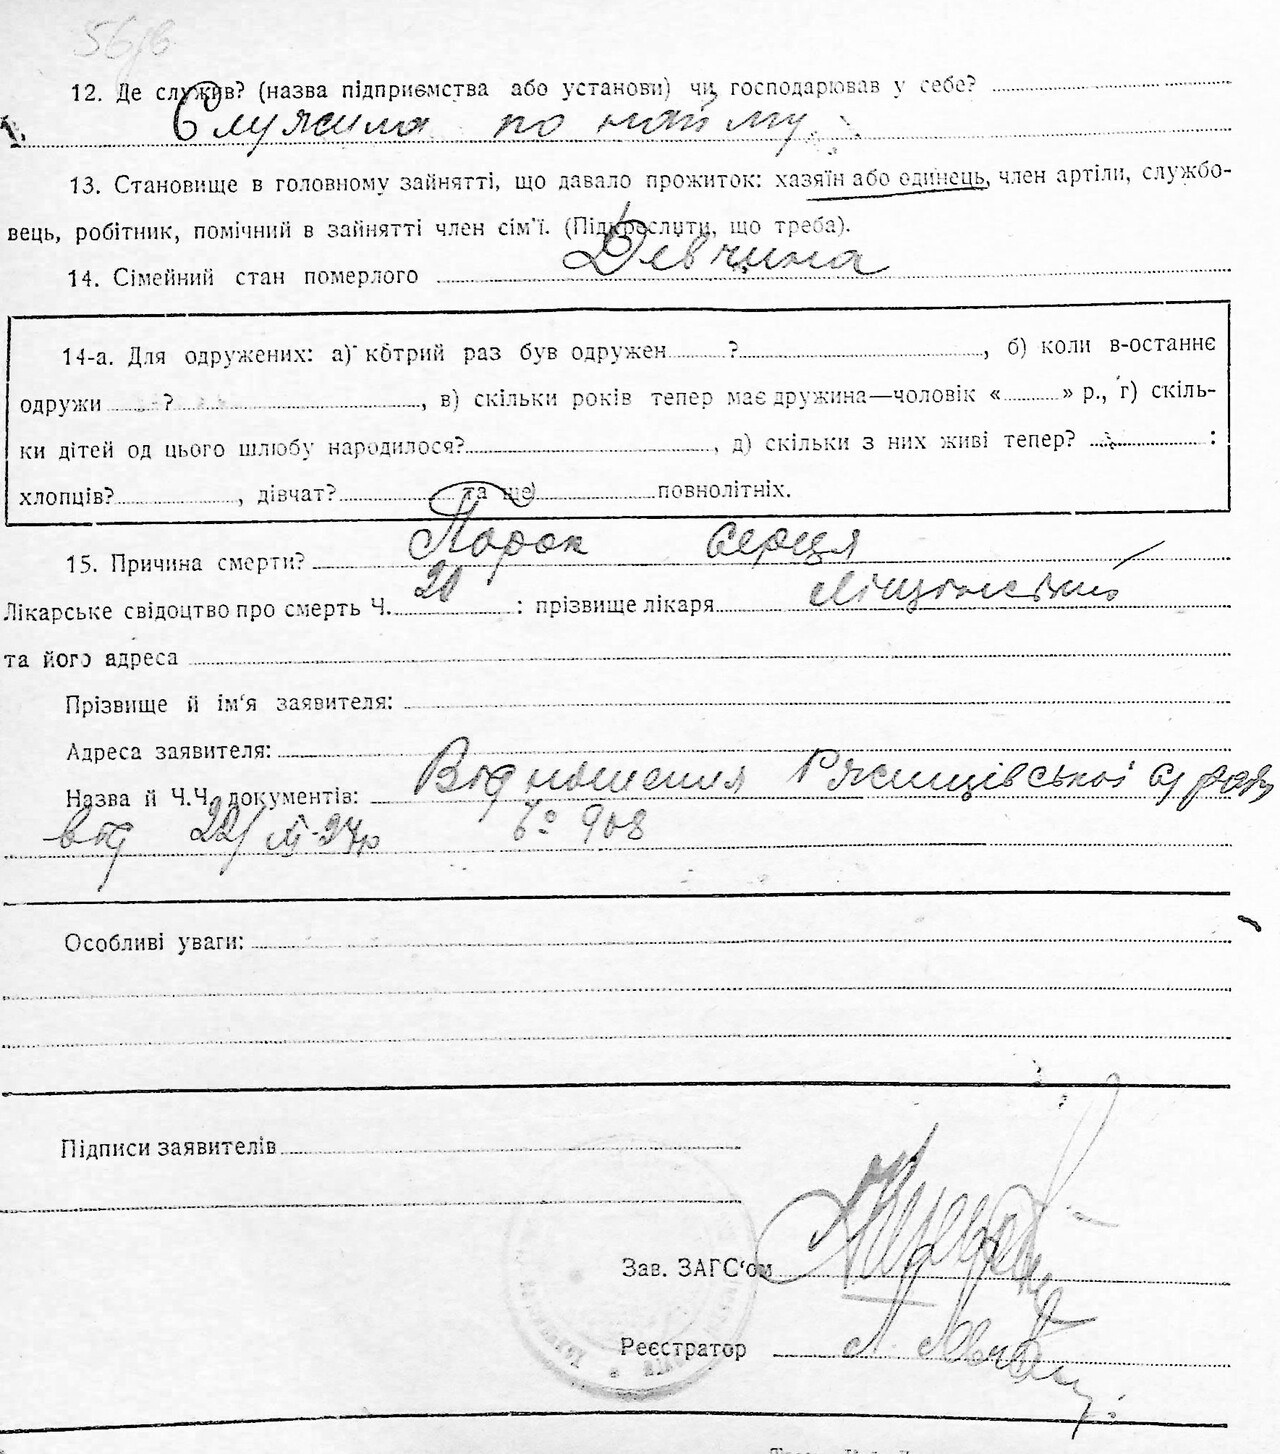 56/в
12. Де служив? (назва підприємства або установи) чи господарював у себе?
Служила по найму.
13. Становище в головному зайнятті, що давало прожиток: хазяїн або одинець, член артіли, службо-
вець, робітник, помічний в зайнятті член сім'ї. (Підкреслити, що треба).
14. Сімейний стан померлого Девчина
14-а. Для одружених: а) котрий раз був одружен ?, б) коли в-останнє
одружи ?, в) скільки років тепер має дружина—чоловік « » р., г) скіль-
ки дітей од цього шлюбу народилося?, д) скільки з них живі тепер? :
хлопців?, дівчат? та ще) повнолітніх.
15. Причина смерти? Порок серця
Лікарське свідоцтво про смерть Ч. 20 : прізвище лікаря
та його адреса
Прізвище й ім'я заявителя:
Адреса заявителя:
Назва й Ч.Ч. документів: Відношення Ржищівської с/ради
від 22/XI-27р № 908
Особливі уваги:
Підписи заявителів
Зав. ЗАГС'ом
Реєстратор